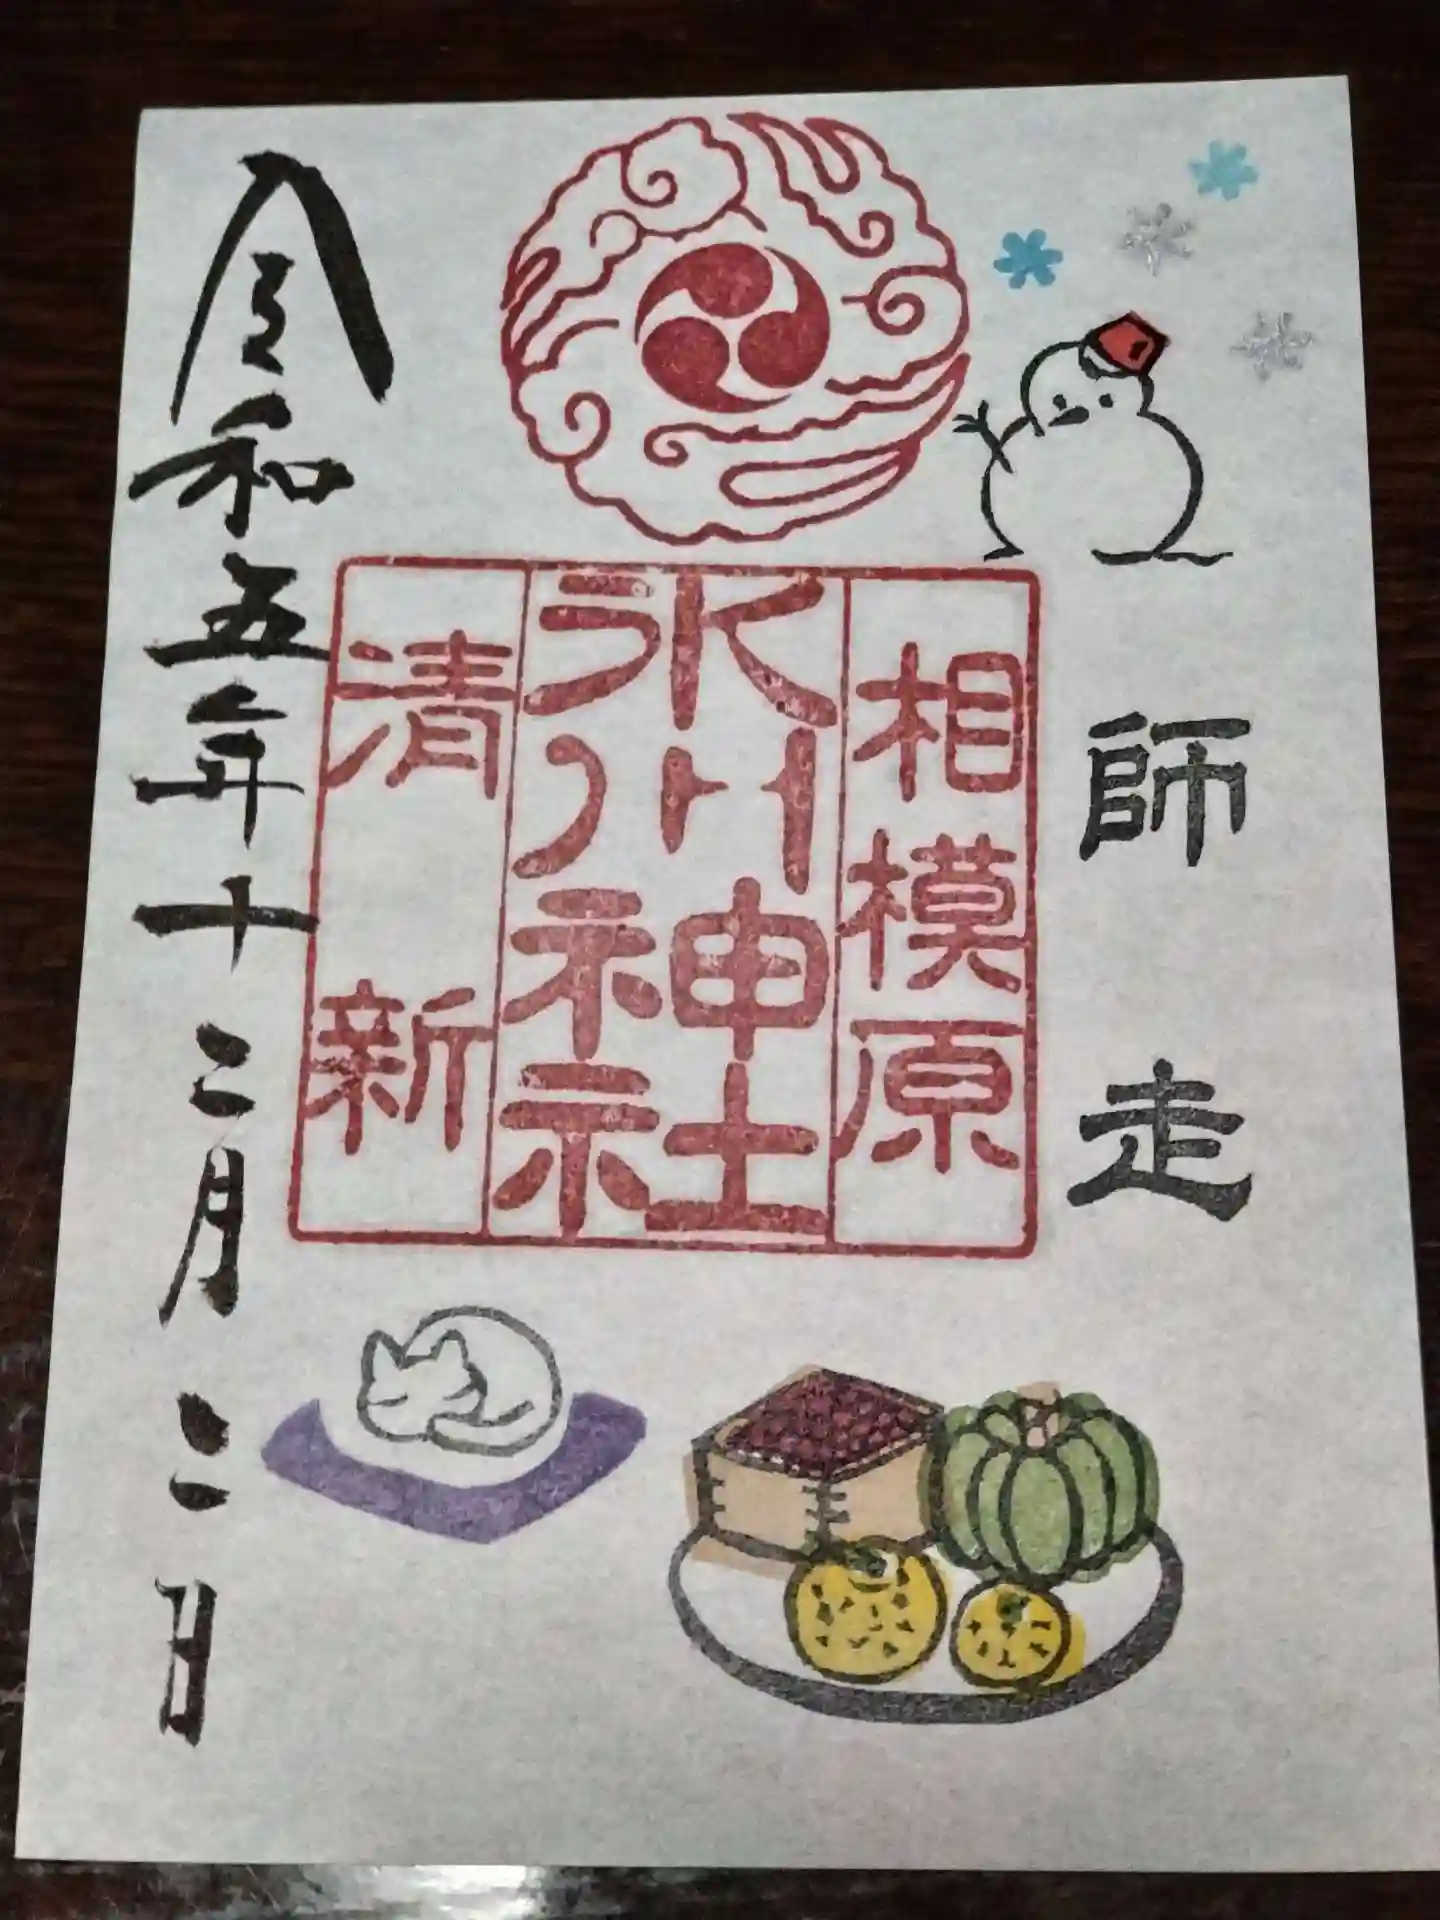 師走
相模原
氷川神社
清新
令和五年十二月二日